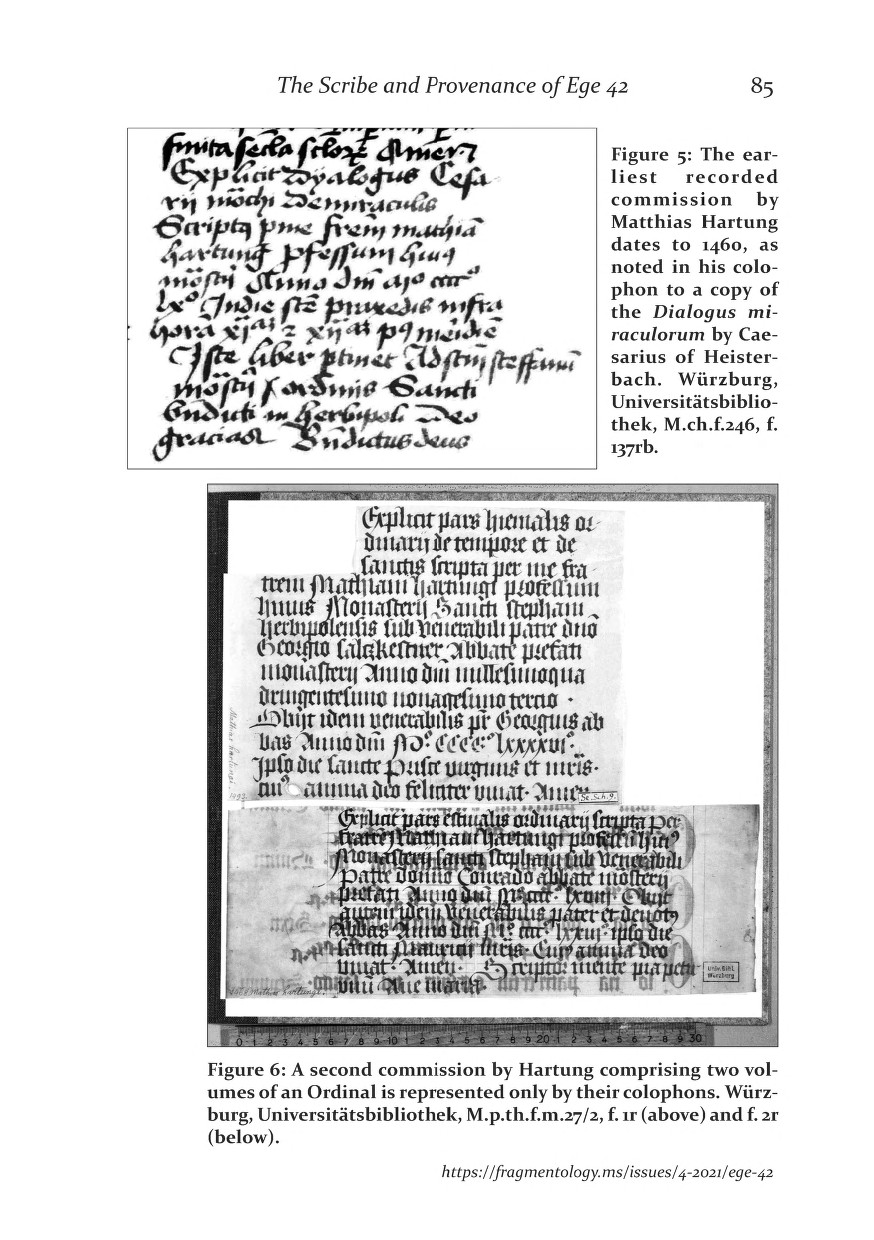 The Scribe and Provenance of Ege 42 85
finita secla sclorz Amen
Explicit Dyalogus Cesa
rij mochi De miraculis
Scriptq pme frem mathia
hartung pfessum huiq
mostij Anno dm
lxo Indie ste praxedis infra
hora xjaz z xijaz pq meidie
Iste liber ptinet Ad stm steffanu
mostij ordinis Sancti
bndicti in herbipoli Deo
gracias Bndictus deus
Figure 5: The ear-
liest recorded
commission by
Matthias Hartung
dates to 1460, as
noted in his colo-
phon to a copy of
the Dialogus mi-
raculorum by Cae-
sarius of Heister-
bach. Würzburg,
Universitätsbiblio-
thek, M.ch.f.246, f.
137rb.
Explicit pars hiemalis or
dinarij de tempore et de
sanctis scripta per me fra
trem Mathiam hartungi professum
huius Monasterij Sancti stephani
herbipolensis sub venerabili patre dno
Georgio saltzkestner Abbate prefati
monasterij Anno dni millesimoqua
dringentesimo nonagesimo tercio
Obijt idem venerabilis pr Georgius ab
bas Anno dni Mo CCCCo lxxxxvi
Ipso die sancte Prisce virginis et mris.
cuio anima deo feliciter vivat. Amen
Mathias hartungi.
1493.
Sc.Sch.9.
Explicit pars estivalis ordinarij scripta per
fratrem Mathiam hartungi professu huio
Monasterij sancti stephani sub venerabili
Patre domno Conrado abbate mosterij
prefati Anno dni Obijt
autem idem venerabilis pater et devotq
Abbas Anno dni lxxiij ipso die
sancti mris. Cuiq anima deo
vivat. Amen. Scriptor mente pia petit
unu Ave maria.
Mathias hartungi.
Univ. Bibl.
Würzburg
0 1 2 3 4 5 6 7 8 9 10 1 2 3 4 5 6 7 8 9 20 1 2 3 4 5 6 7 8 9 30
Figure 6: A second commission by Hartung comprising two vol-
umes of an Ordinal is represented only by their colophons. Würz-
burg, Universitätsbibliothek, M.p.th.f.m.27/2, f. 1r (above) and f. 2r
(below).
https://fragmentology.ms/issues/4-2021/ege-42